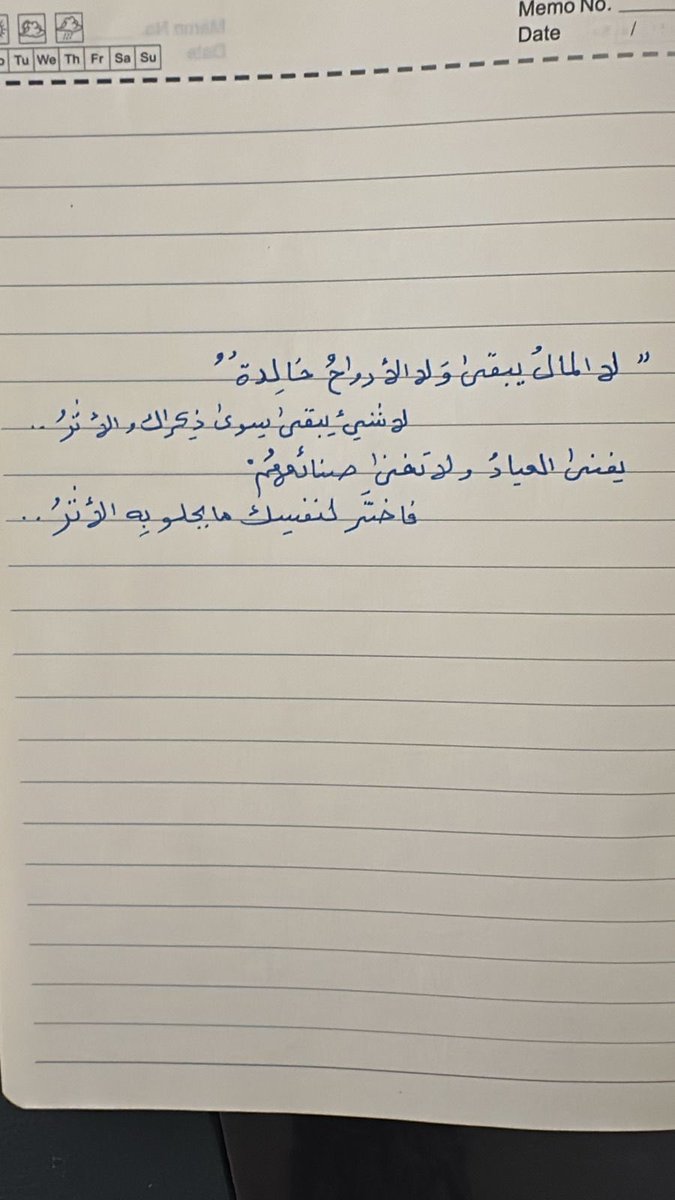 Memo No.
Date /
Tu We Th Fr Sa Su
" لا المالُ يبقىٰ وَلا الأرواحُ خَالِدة "
لا شيءٌ يبقىٰ سوىٰ ذِكراك والأثرُ ..
يفنىٰ العبادُ ولا تفنىٰ صنائعهُمُ
فاختَر لنفسِك ما يحلو بِه الأثرُ ..